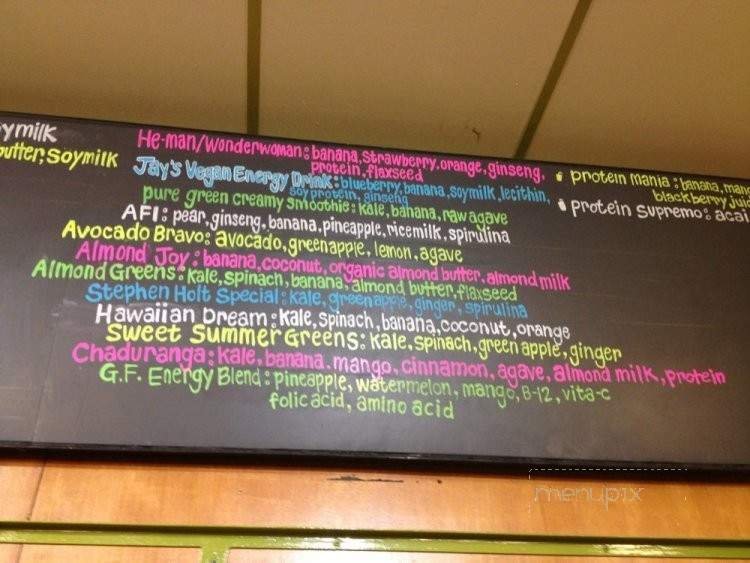 ymilk
butter, soymilk
He-man/wonderwoman: banana, strawberry, orange, ginseng,
protein, flaxseed
Jay's Vegan Energy Drink: blueberry, banana, soymilk, lecithin,
soy protein, ginseng
pure green creamy smoothie: kale, banana, raw agave
AFI: pear, ginseng, banana, pineapple, ricemilk, spirulina
Avocado Bravo: avocado, green apple, lemon, agave
Almond Joy: banana, coconut, organic almond butter, almond milk
Almond Greens: kale, spinach, banana, almond butter, flaxseed
Stephen Holt Special: kale, green apple, ginger, spirulina
Hawaiian Dream: kale, spinach, banana, coconut, orange
Sweet Summer Greens: kale, spinach, green apple, ginger
Chaduranga: kale, banana, mango, cinnamon, agave, almond milk, protein
G.F. Energy Blend: pineapple, watermelon, mango, B-12, vita-c
folic acid, amino acid
protein mania: banana, man
blackberry juic
protein supremo: acai
menupix